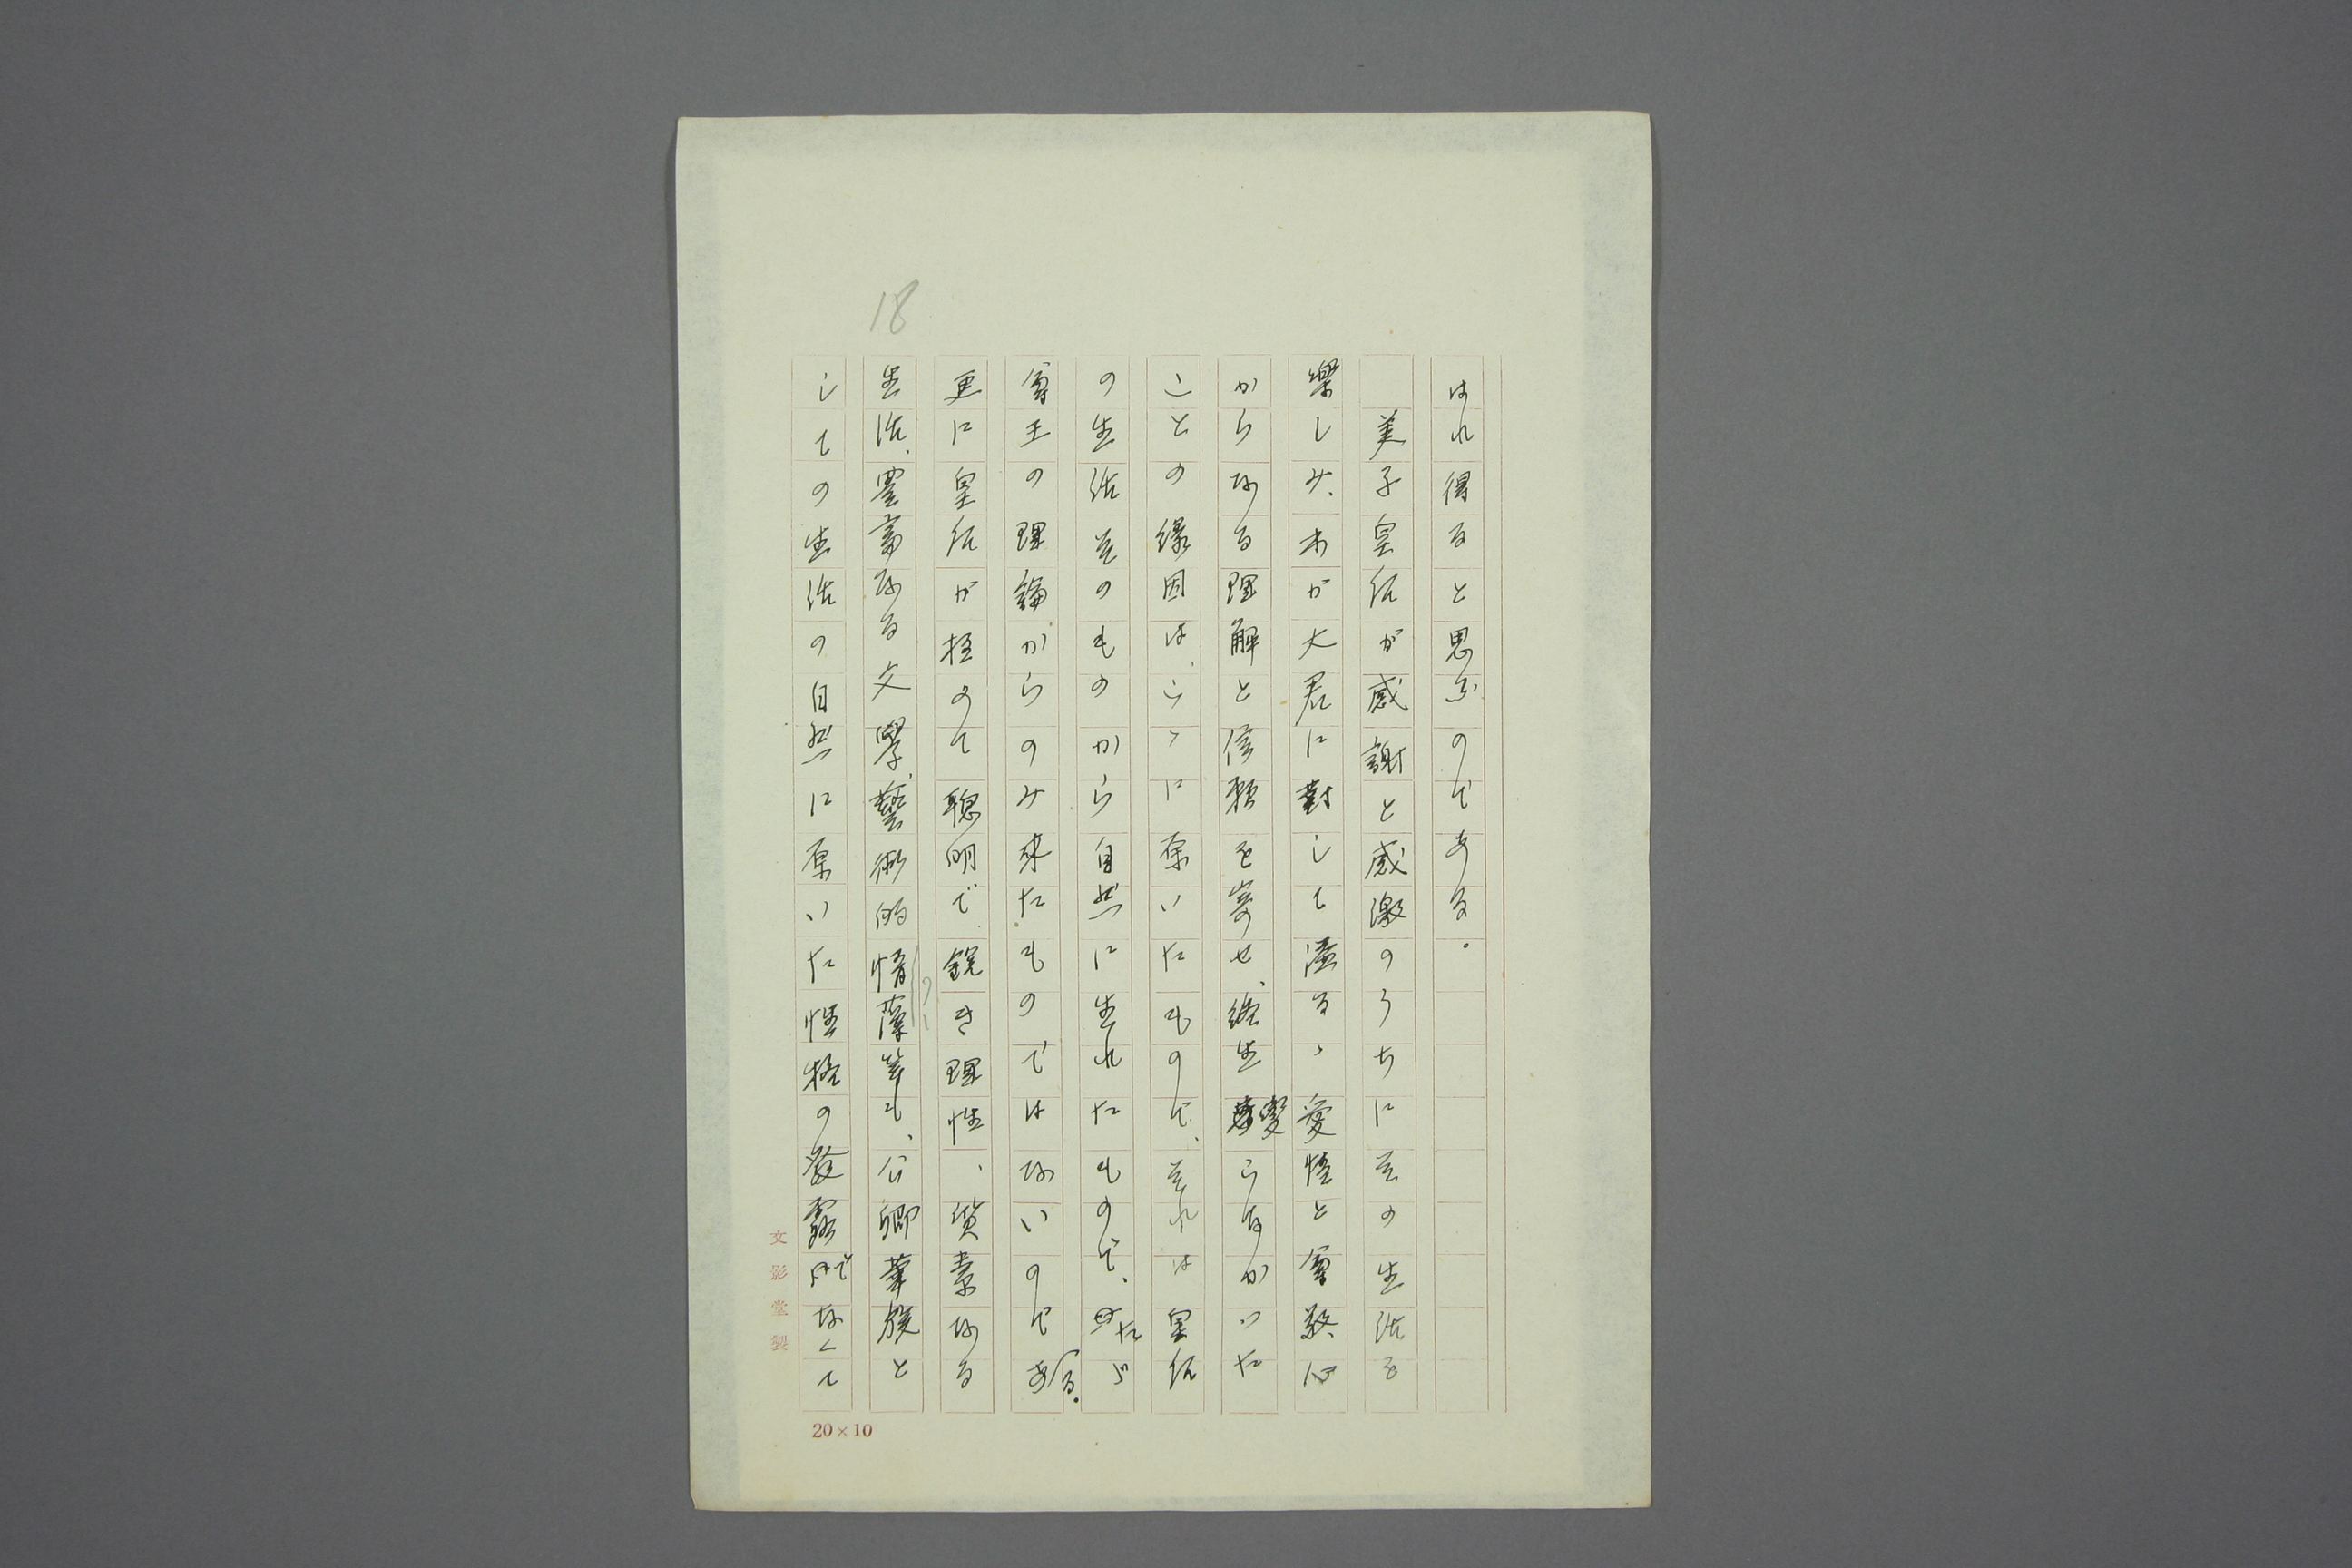 18
はれ得ると思ふのである。
美子皇后が感謝と感激のうちにその生活を
樂しみ、わが大君に對して溢るゝ愛情と尊敬心
からなる理解と信頼を寄せ、終生變らなかつた
ことの縁因は、こゝに原いたもので、それは皇后
の生活そのものから自然に生れたもので、たゞ
尊王の理論からのみ来たものではないのである。
更に皇后が極めて聰明で鋭き理性、質素なる
生活、豊富なる文學、藝術的情藻等も、公卿華族と
しての生活の自然に原いた性格の發露でなくて
文影堂製
20×10